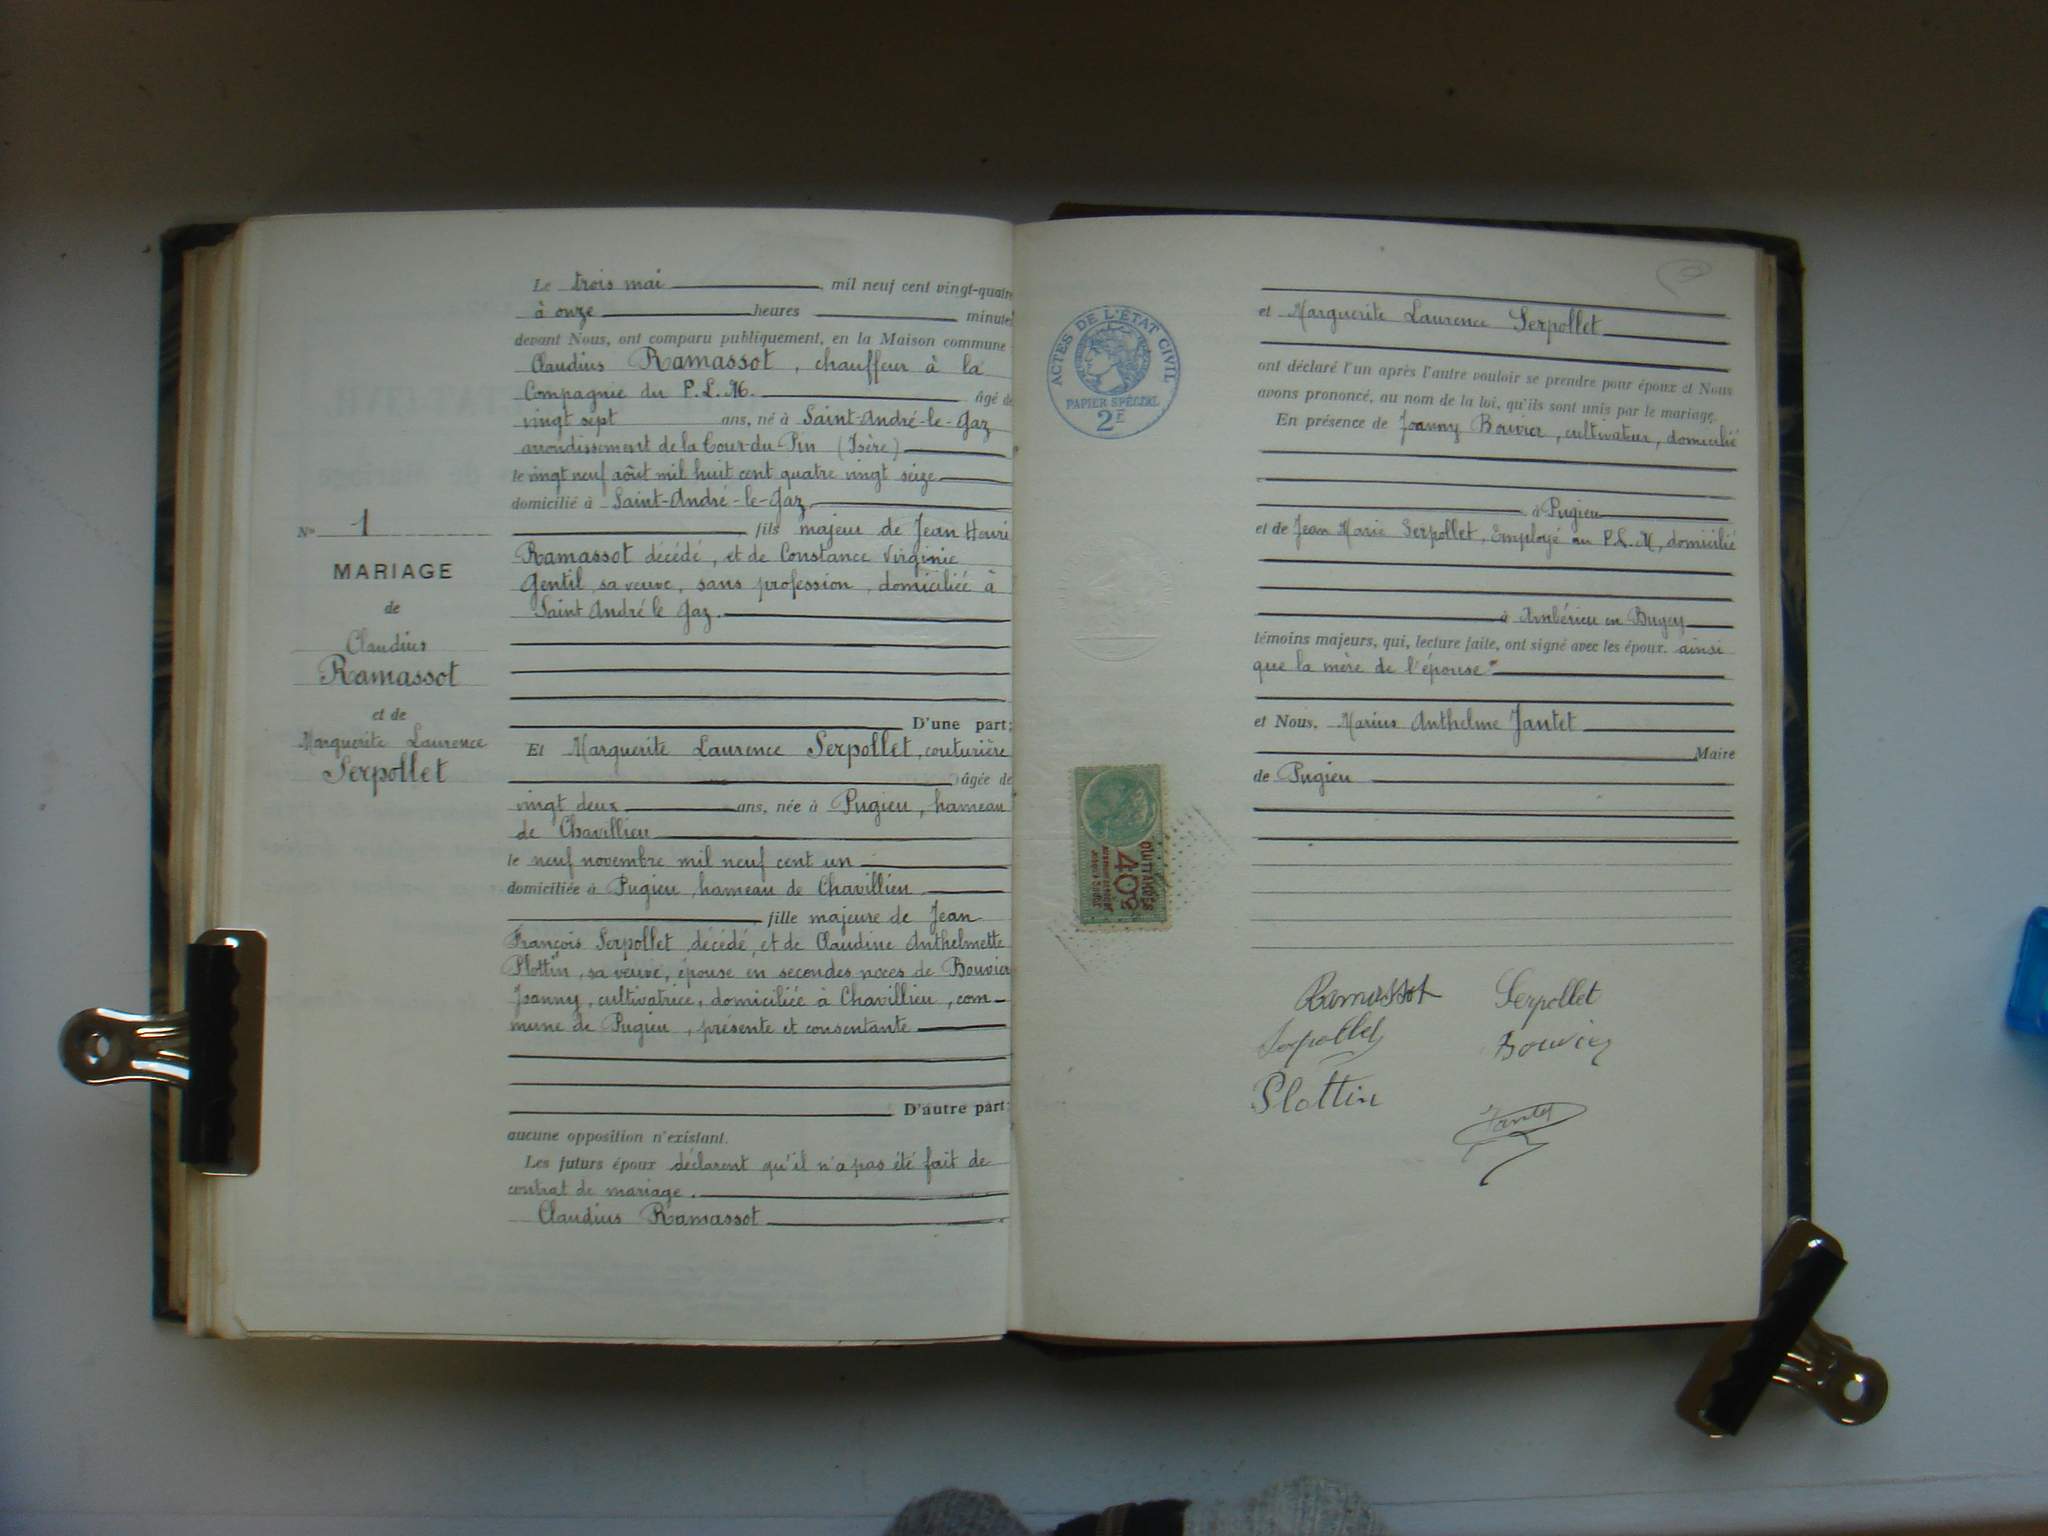 Le trois mai mil neuf cent vingt-quatre
à onze heures minutes
devant Nous, ont comparu publiquement, en la Maison commune
Claudius Ramassot, chauffeur à la
Compagnie du P.L.M. âgé de
vingt sept ans, né à Saint-André-le-Gaz
arrondissement de la Tour-du-Pin (Isère)
le vingt neuf août mil huit cent quatre vingt seize
domicilié à Saint-André-le-Gaz
fils majeur de Jean Henri
Ramassot décédé, et de Constance Virginie
Gentil, sa veuve, sans profession, domiciliée à
Saint André le Gaz.
D'une part;
Et Marguerite Laurence Serpollet, couturière
âgée de
vingt deux ans, née à Pugieu, hameau
de Chavillieu
le neuf novembre mil neuf cent un
domiciliée à Pugieu, hameau de Chavillieu
fille majeure de Jean
François Serpollet, décédé, et de Claudine Anthelmette
Plottin, sa veuve, épouse en secondes noces de Bouvier
Joanny, cultivatrice, domiciliée à Chavillieu, com-
mune de Pugieu, présente et consentante
D'autre part;
aucune opposition n'existant.
Les futurs époux déclarent qu'il n'a pas été fait de
contrat de mariage.
Claudius Ramassot
N° 1
MARIAGE
de
Claudius
Ramassot
et de
Marguerite Laurence
Serpollet
ACTES DE L'ÉTAT CIVIL
PAPIER SPÉCIAL
2F
et Marguerite Laurence Serpollet
ont déclaré l'un après l'autre vouloir se prendre pour époux et Nous
avons prononcé, au nom de la loi, qu'ils sont unis par le mariage.
En présence de Joanny Bouvier, cultivateur, domicilié
à Pugieu
et de Jean Marie Serpollet, Employé au P.L.M, domicilié
à Ambérieu en Bugey
témoins majeurs, qui, lecture faite, ont signé avec les époux. ainsi
que la mère de l'épouse
et Nous, Marius Anthelme Jantet
Maire
de Pugieu
QUITTANCES
40c
Ramassot Serpollet
Serpollet Bouvier
Plottin
Jantet